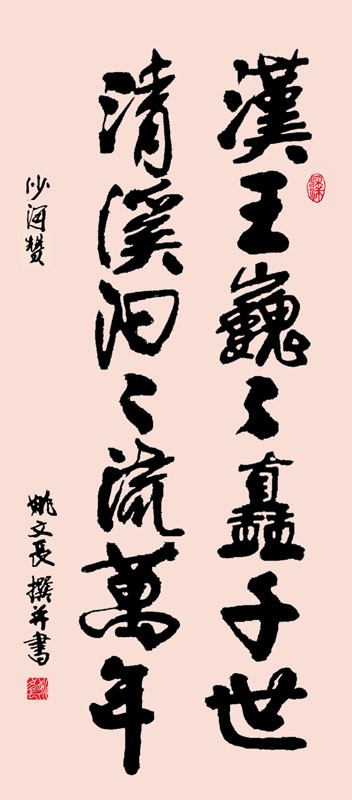 漢王巍々矗千世
清溪汩々流萬年
沙河贊
姚文長撰并書